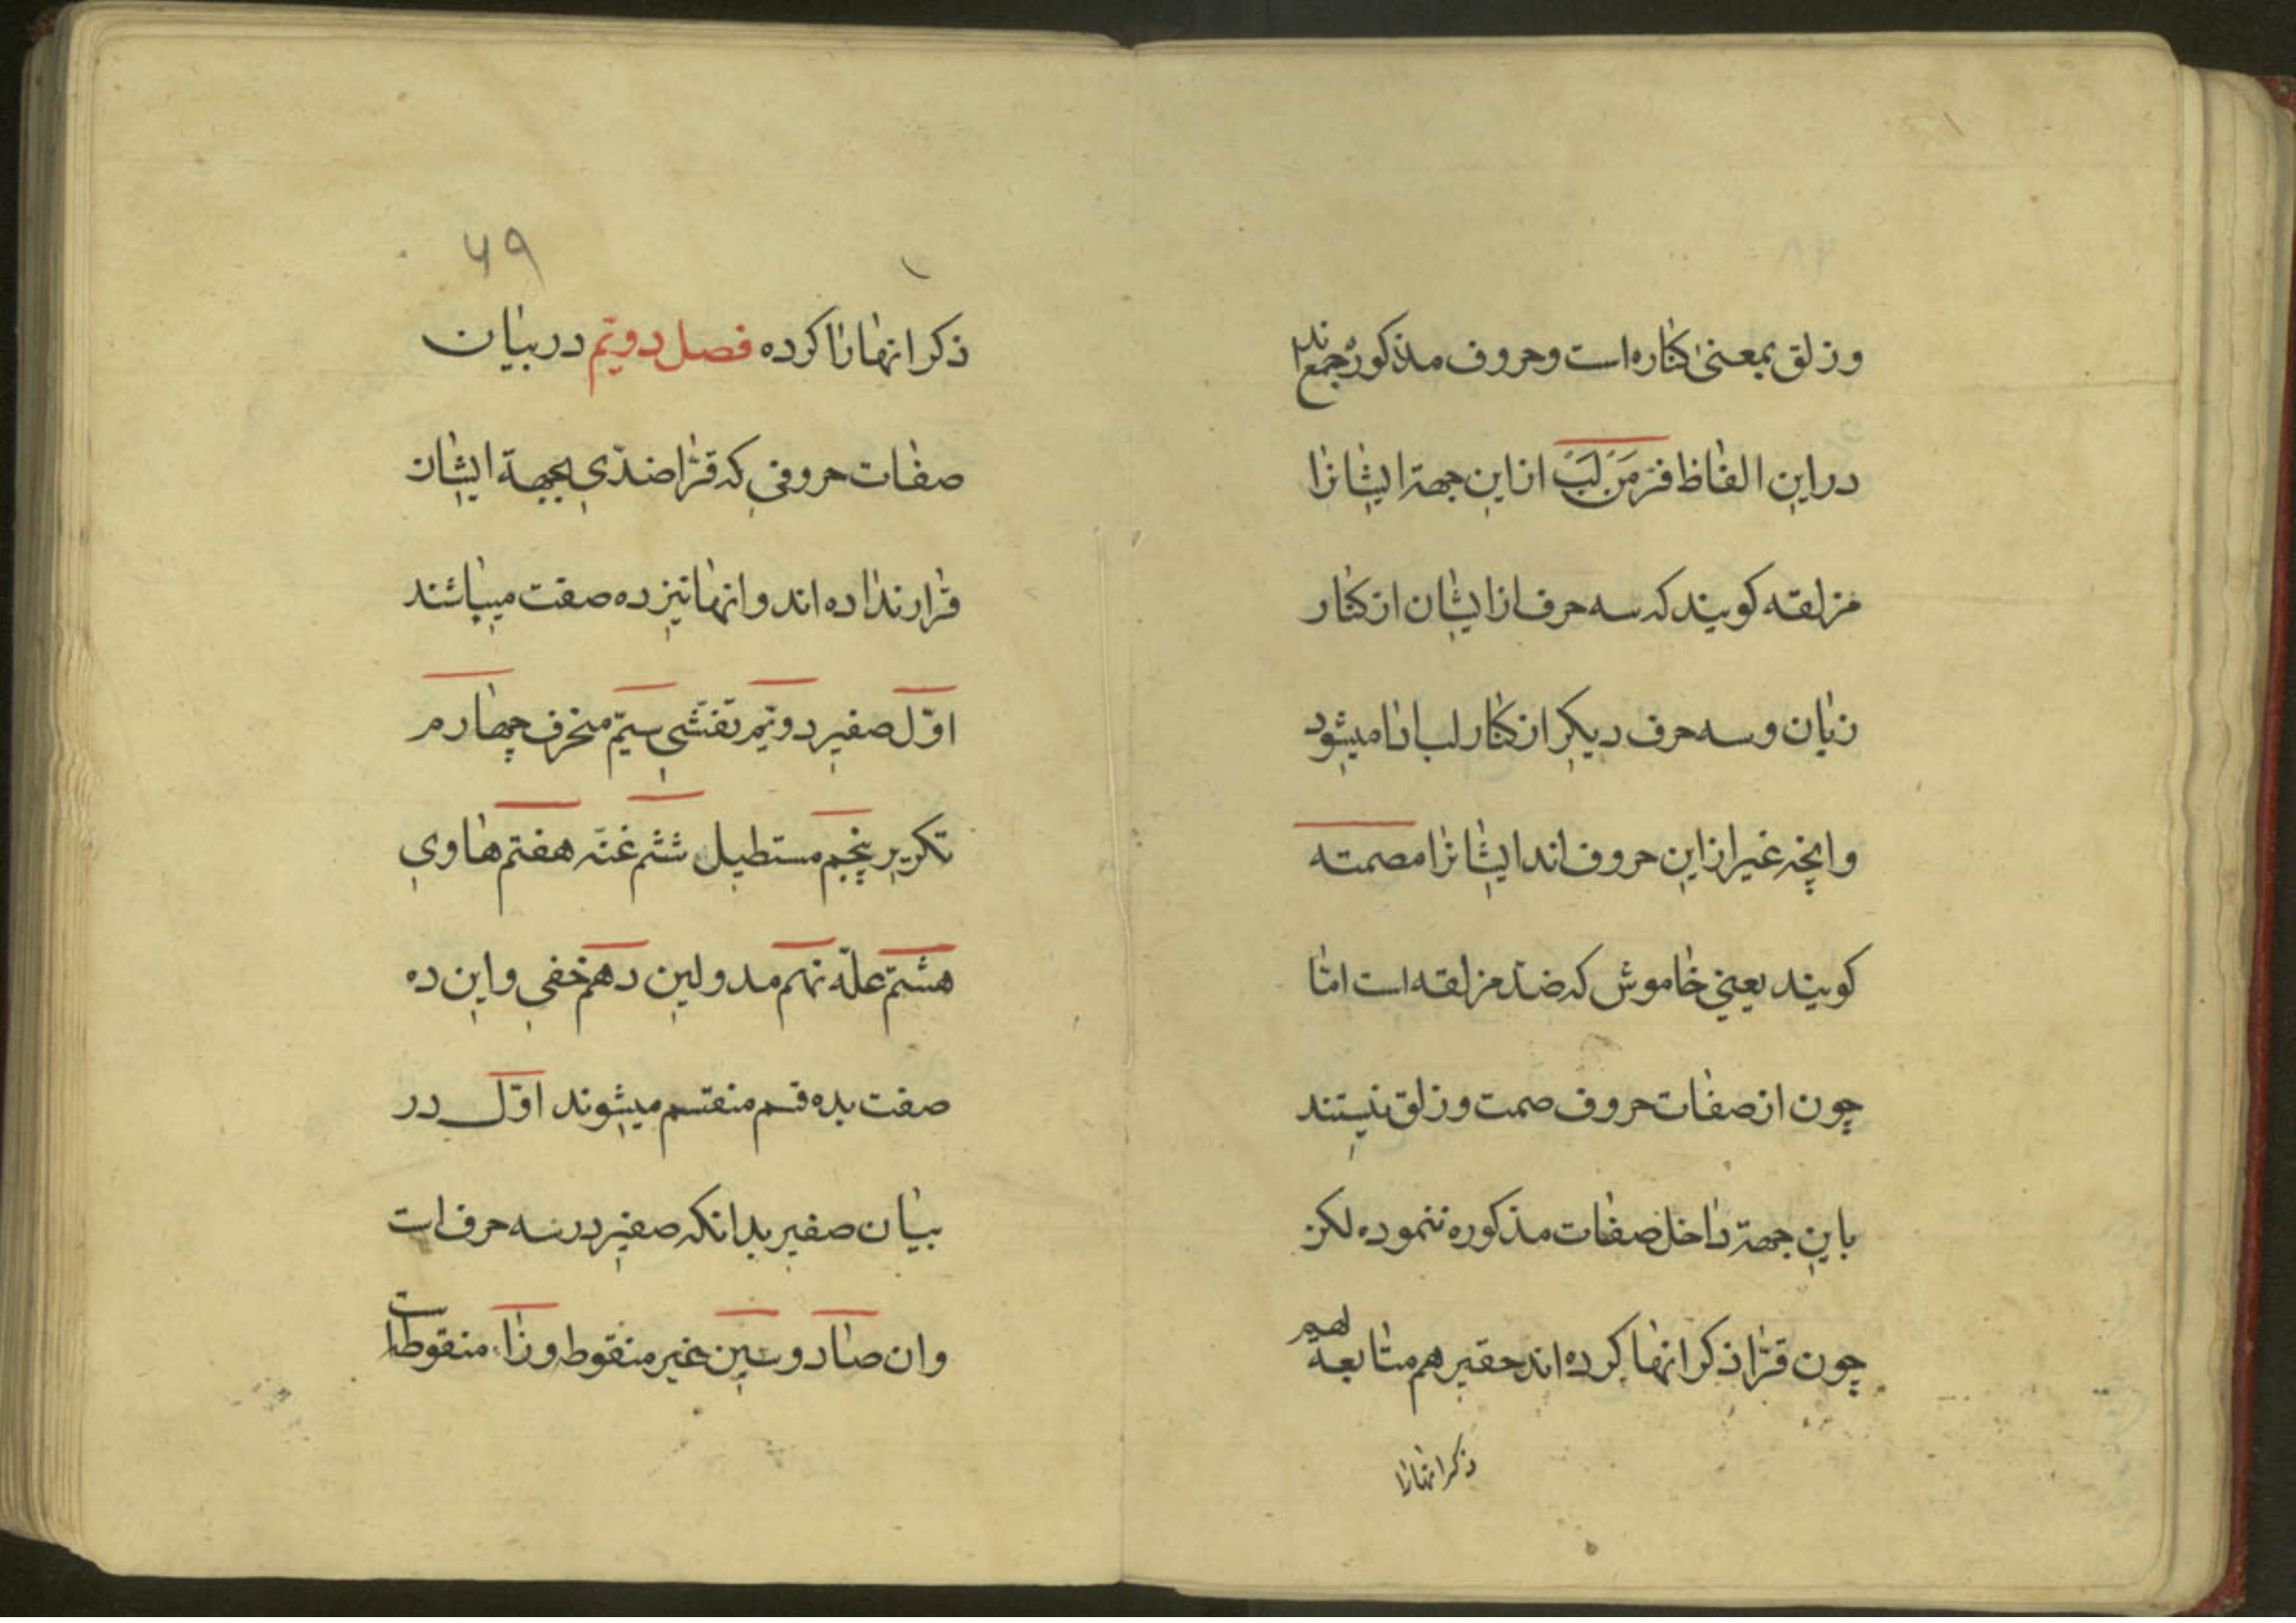 وزلق بمعنیٰ کناره است وحروف مذکوره جمعند
دراین الفاظ فَرَّ مَنْ لَبَّ ازاین جهة ایشانرا
مزلقه کویند که سه حرف ازایشان از کنار
زبان وسه حرف دیکر از کنار لب ادا میشود
وانچه غیر ازاین حروف اند ایشانرا مصمته
کویند یعنی خاموش که ضدّ مزلقه است امّا
چون از صفات حروف صمت وزلق نیستند
باین جهة داخل صفات مذکوره ننموده لکن
چون قرّا ذکر انها کرده اند حقیر هم متابعة لهم
ذکر انهارا
۶۹
ذکر انهارا کرده فصل دویّم در بیان
صفات حروفی که قرّا ضدّی بجهة ایشان
قرار نداده اند وانها نیز ده صفت میباشند
اوّل صفیر دویّم تفشّی سیّم منحرف چهارم
تکریر پنجم مستطیل ششم غنّه هفتم هاوی
هشتم علّه نهم مد ولین دهم خفی واین ده
صفت بده قسم منقسم میشوند اوّل در
بیان صفیر بدانکه صفیر در سه حرف است
وان صاد وسین غیر منقوط وزاء منقوطه است